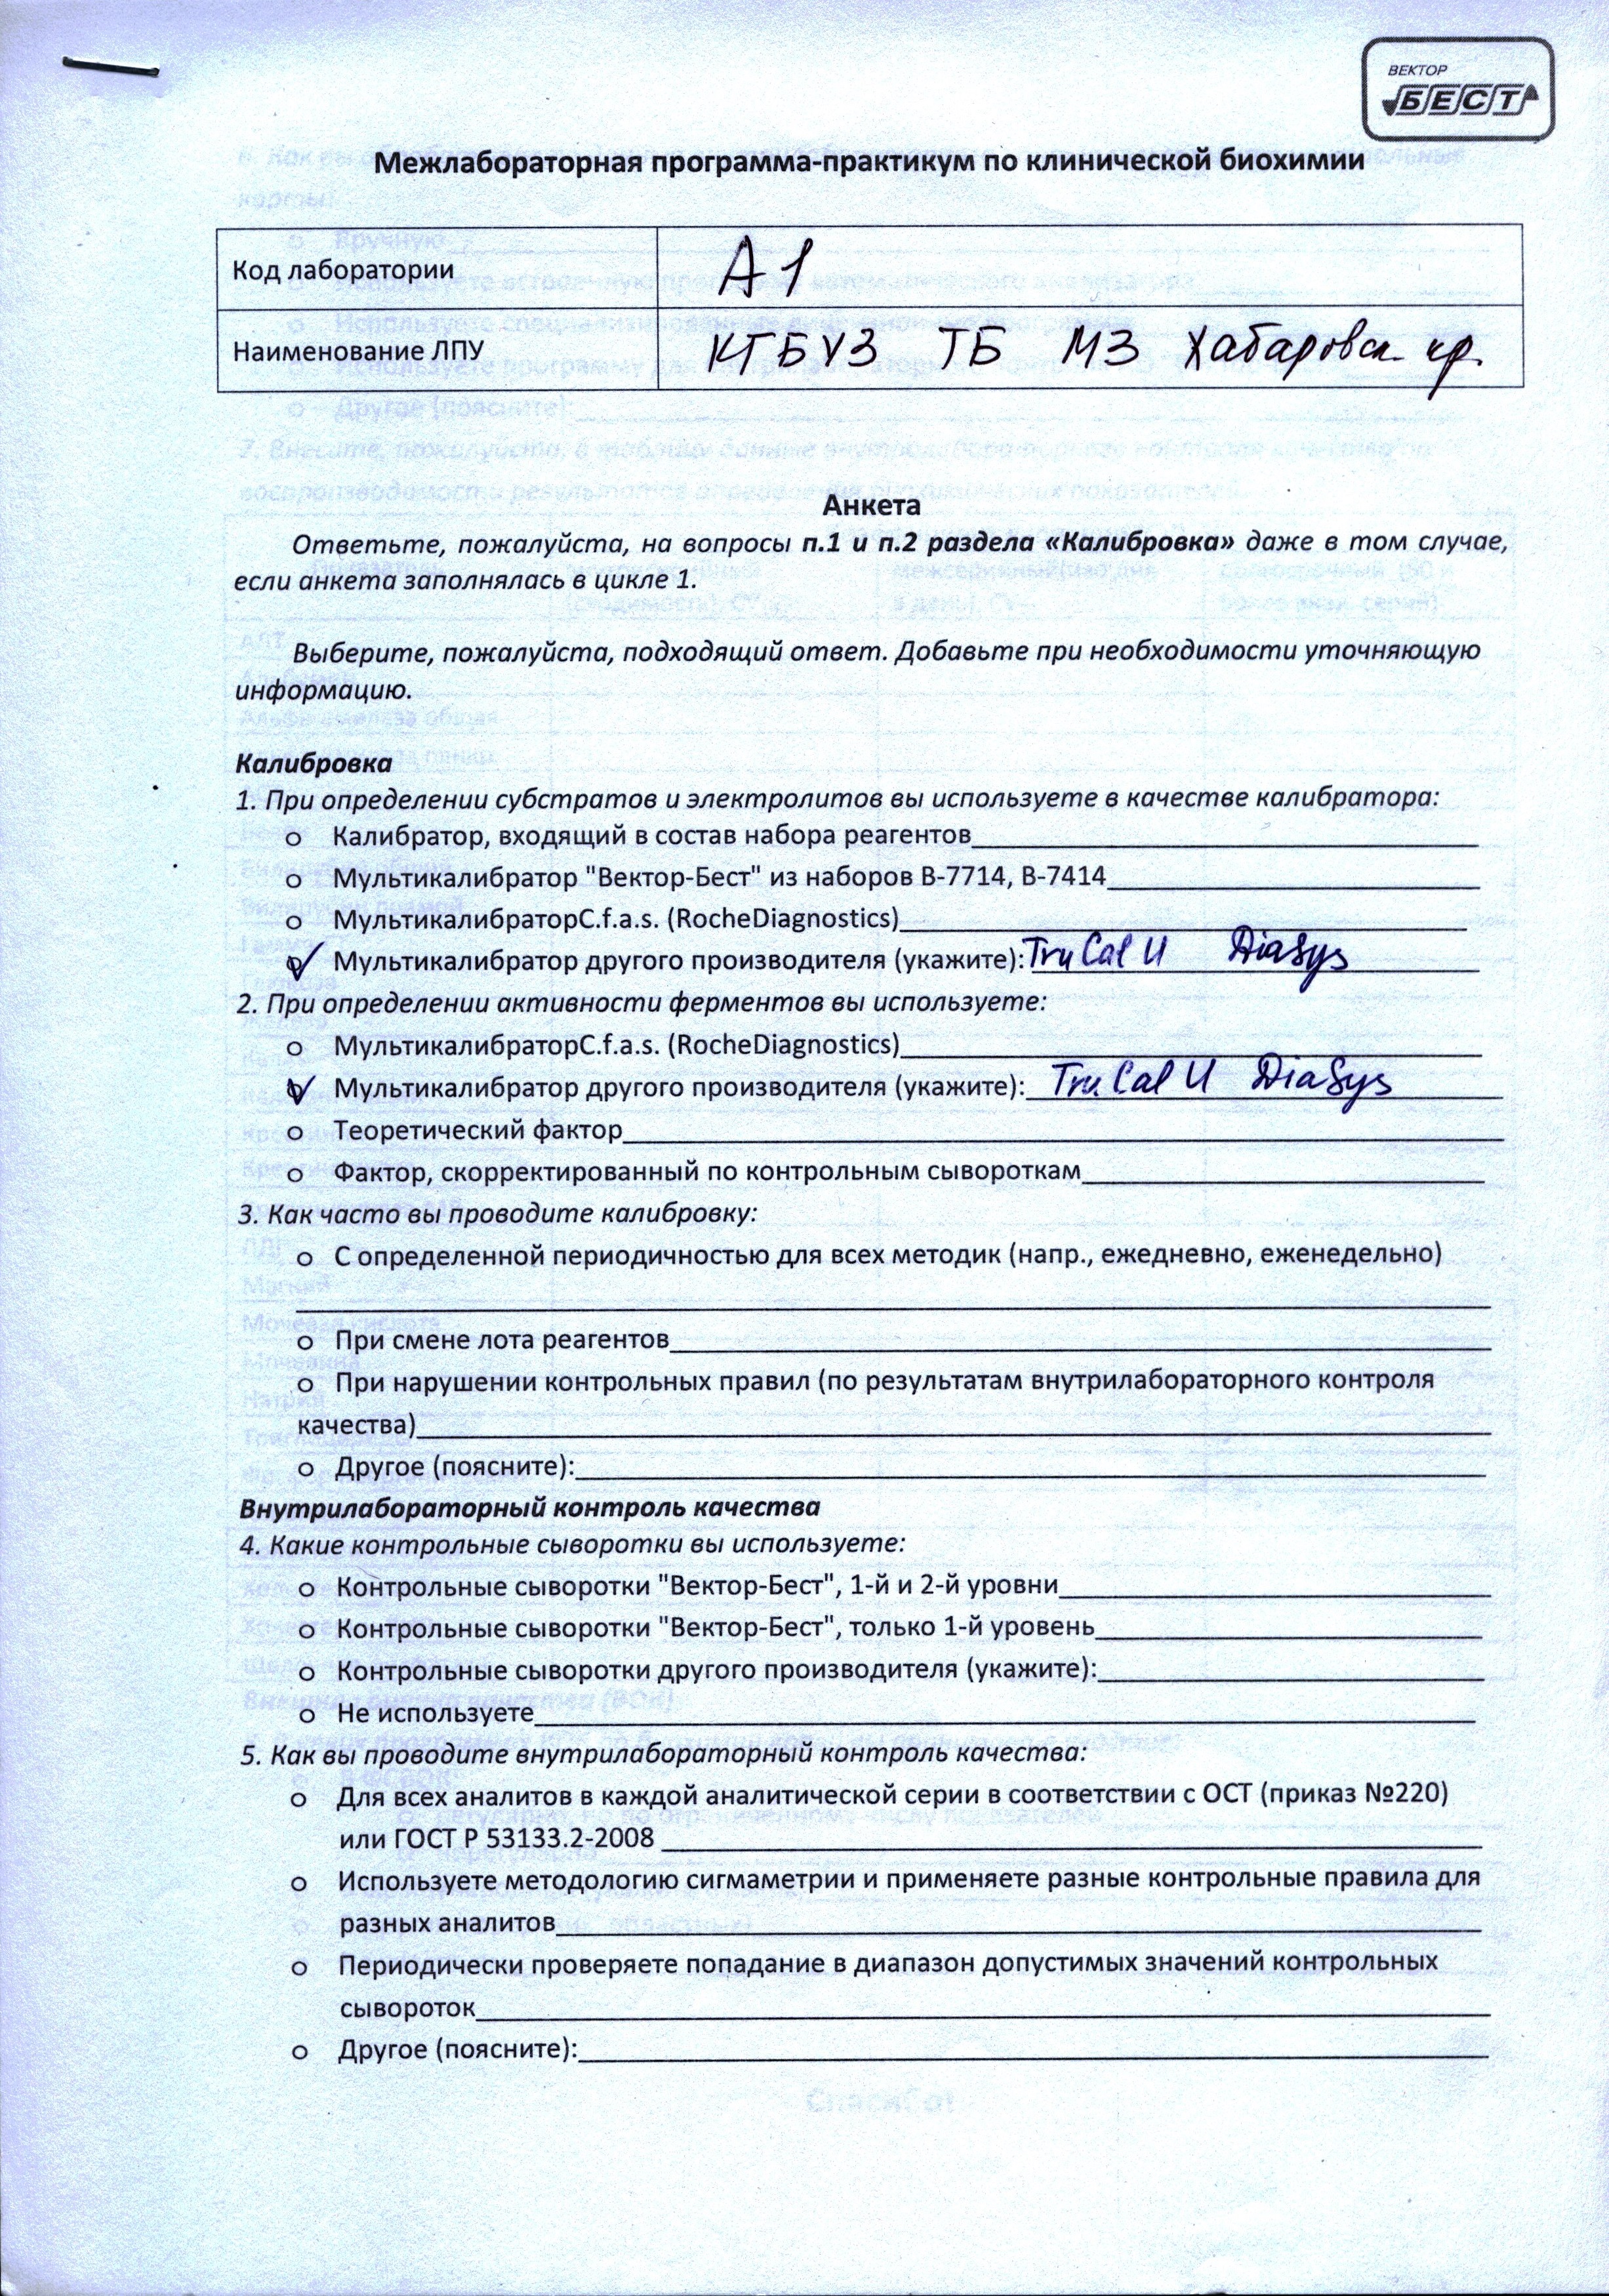 ВЕКТОР
БЕСТ
Межлабораторная программа-практикум по клинической биохимии
Код лаборатории А1
Наименование ЛПУ КГБУЗ ТБ МЗ Хабаровск. кр.
Анкета
Ответьте, пожалуйста, на вопросы п.1 и п.2 раздела «Калибровка» даже в том случае,
если анкета заполнялась в цикле 1.
Выберите, пожалуйста, подходящий ответ. Добавьте при необходимости уточняющую
информацию.
Калибровка
1. При определении субстратов и электролитов вы используете в качестве калибратора:
o Калибратор, входящий в состав набора реагентов
o Мультикалибратор "Вектор-Бест" из наборов В-7714, В-7414
o МультикалибраторC.f.a.s. (RocheDiagnostics)
o Мультикалибратор другого производителя (укажите): TruCal U DiaSys
2. При определении активности ферментов вы используете:
o МультикалибраторC.f.a.s. (RocheDiagnostics)
o Мультикалибратор другого производителя (укажите): TruCal U DiaSys
o Теоретический фактор
o Фактор, скорректированный по контрольным сывороткам
3. Как часто вы проводите калибровку:
o С определенной периодичностью для всех методик (напр., ежедневно, еженедельно)
o При смене лота реагентов
o При нарушении контрольных правил (по результатам внутрилабораторного контроля
качества)
o Другое (поясните):
Внутрилабораторный контроль качества
4. Какие контрольные сыворотки вы используете:
o Контрольные сыворотки "Вектор-Бест", 1-й и 2-й уровни
o Контрольные сыворотки "Вектор-Бест", только 1-й уровень
o Контрольные сыворотки другого производителя (укажите):
o Не используете
5. Как вы проводите внутрилабораторный контроль качества:
o Для всех аналитов в каждой аналитической серии в соответствии с ОСТ (приказ №220)
или ГОСТ Р 53133.2-2008
o Используете методологию сигмаметрии и применяете разные контрольные правила для
разных аналитов
o Периодически проверяете попадание в диапазон допустимых значений контрольных
сывороток
o Другое (поясните):